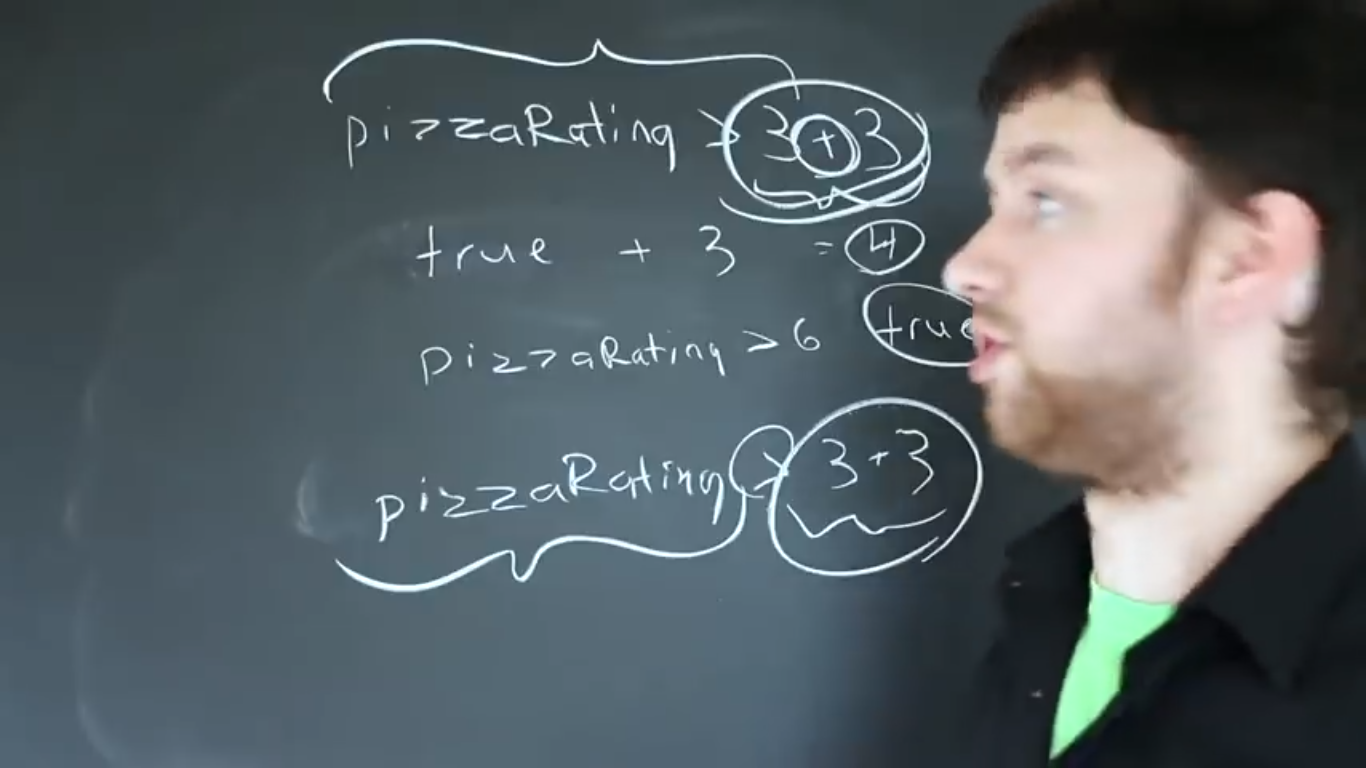 pizzaRating > 3 + 3
true + 3 = 4
pizzaRating > 6 true
pizzaRating > 3 + 3